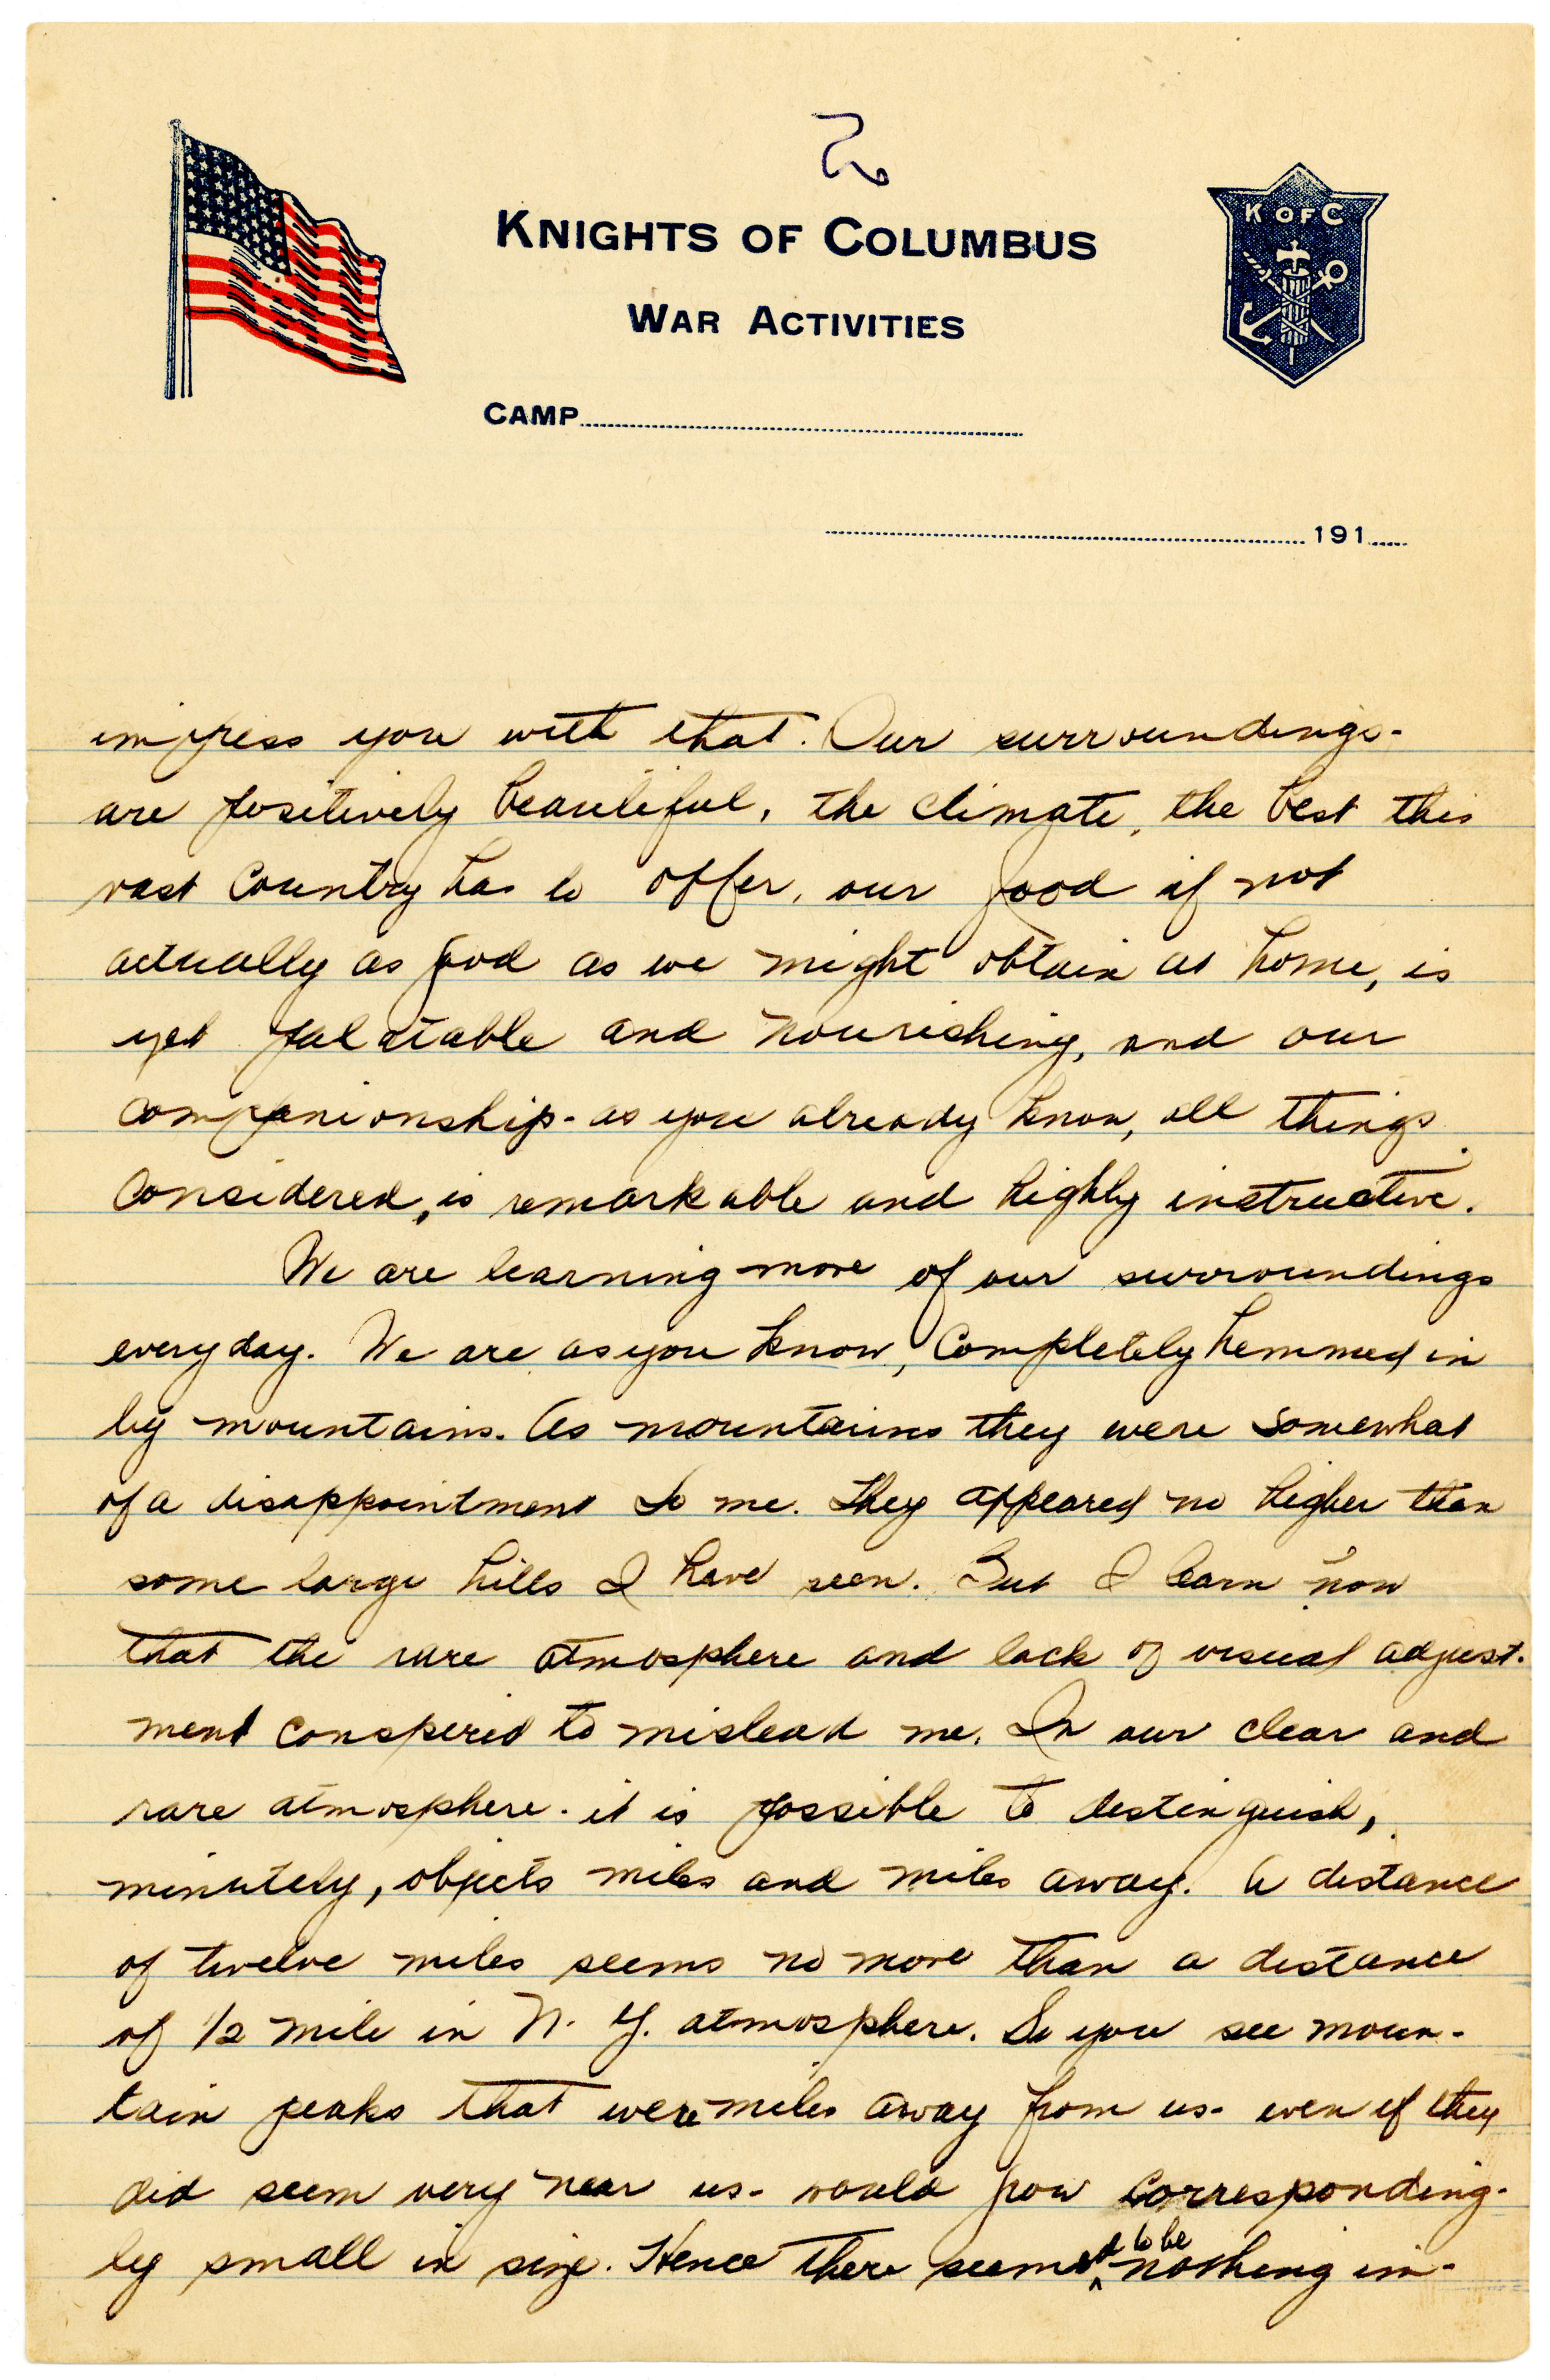 2
KNIGHTS OF COLUMBUS
K OF C
WAR ACTIVITIES
CAMP
191
impress you with that. Our surroundings-
are positively beautiful, the climate, the best this
vast country has to offer, our food if not
actually as good as we might obtain at home, is
yet palatable and nourishing, and our
companionship- as you already know, all things
considered, is remarkable and highly instructive.
We are learning more of our surroundings
everyday. We are as you know, completely hemmed in
by mountains. As mountains they were somewhat
of a disappointment to me. They appeared no higher than
some large hills I have seen. But I learn now
that the rare atmosphere and lack of visual adjust-
ment conspired to mislead me. In our clear and
rare atmosphere- it is possible to distinguish,
minutely, objects miles and miles away. A distance
of twelve miles seems no more than a distance
of 1/2 mile in N. Y. atmosphere. So you see moun-
tain peaks that were miles away from us- even if they
did seem very near us- would grow corresponding-
ly small in size. Hence there seemed to be nothing im-